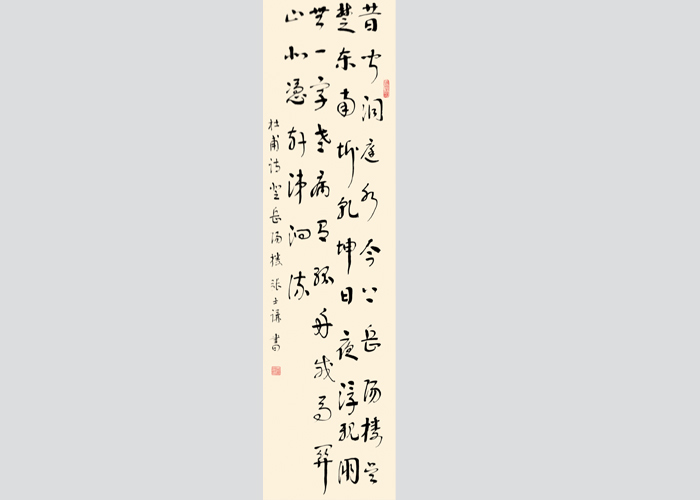 昔闻洞庭水今上岳阳楼吴
楚东南坼乾坤日夜浮亲朋
無一字老病有孤舟戎马関
山北憑轩涕泗流
杜甫诗登岳阳楼 张士谦书